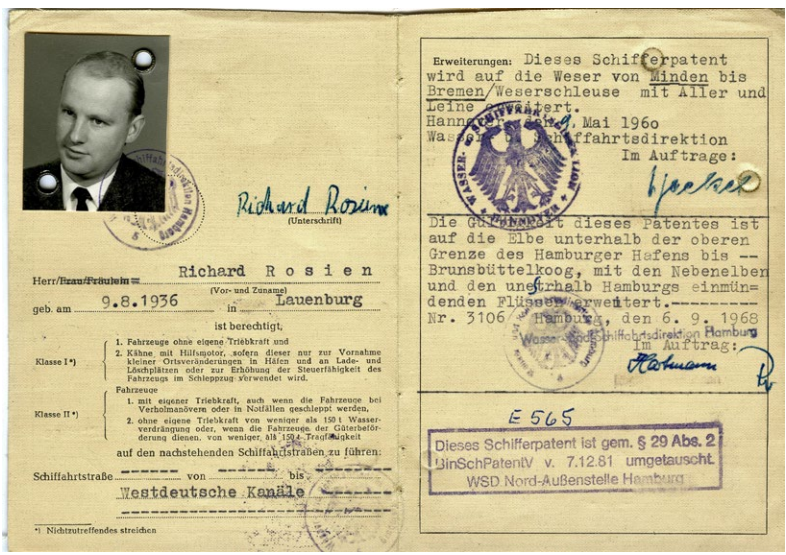 Richard Rosien
(Unterschrift)
Herr/Frau/Fräulein = Richard Rosien
(Vor- und Zuname)
geb. am 9.8.1936 in Lauenburg
ist berechtigt,
Klasse I*)
1. Fahrzeuge ohne eigene Triebkraft und
2. Kähne mit Hilfsmotor, sofern dieser nur zur Vornahme
kleiner Ortsveränderungen in Häfen und an Lade- und
Löschplätzen oder zur Erhöhung der Steuerfähigkeit des
Fahrzeugs im Schleppzug verwendet wird.
Klasse II*)
Fahrzeuge
1. mit eigener Triebkraft, auch wenn die Fahrzeuge bei
Verholmanövern oder in Notfällen geschleppt werden,
2. ohne eigene Triebkraft von weniger als 150 t Wasser-
verdrängung oder, wenn die Fahrzeuge der Güterbeför-
derung dienen, von weniger als 150 t Tragfähigkeit
auf den nachstehenden Schiffahrtstraßen zu führen:
Schiffahrtstraße von bis
Westdeutsche Kanäle
*) Nichtzutreffendes streichen
Erweiterungen: Dieses Schifferpatent
wird auf die Weser von Minden bis
Bremen/Weserschleuse mit Aller und
Leine erweitert.
Hannover, den 9. Mai 1960
Wasser- u. Schiffahrtsdirektion
Im Auftrage:
WASSER- u. SCHIFFAHRTSDIREKTION
HANNOVER
Die Gültigkeit dieses Patentes ist
auf die Elbe unterhalb der oberen
Grenze des Hamburger Hafens bis --
Brunsbüttelkoog, mit den Nebenelben
und den unterhalb Hamburgs einmün-
denden Flüssen erweitert.---------
Nr. 3106 Hamburg, den 6. 9. 1968
Wasser- und Schiffahrtsdirektion Hamburg
Im Auftrag:
Hartmann
E 565
Dieses Schifferpatent ist gem. § 29 Abs. 2
BinSchPatentV v. 7.12.81 umgetauscht.
WSD Nord-Außenstelle Hamburg